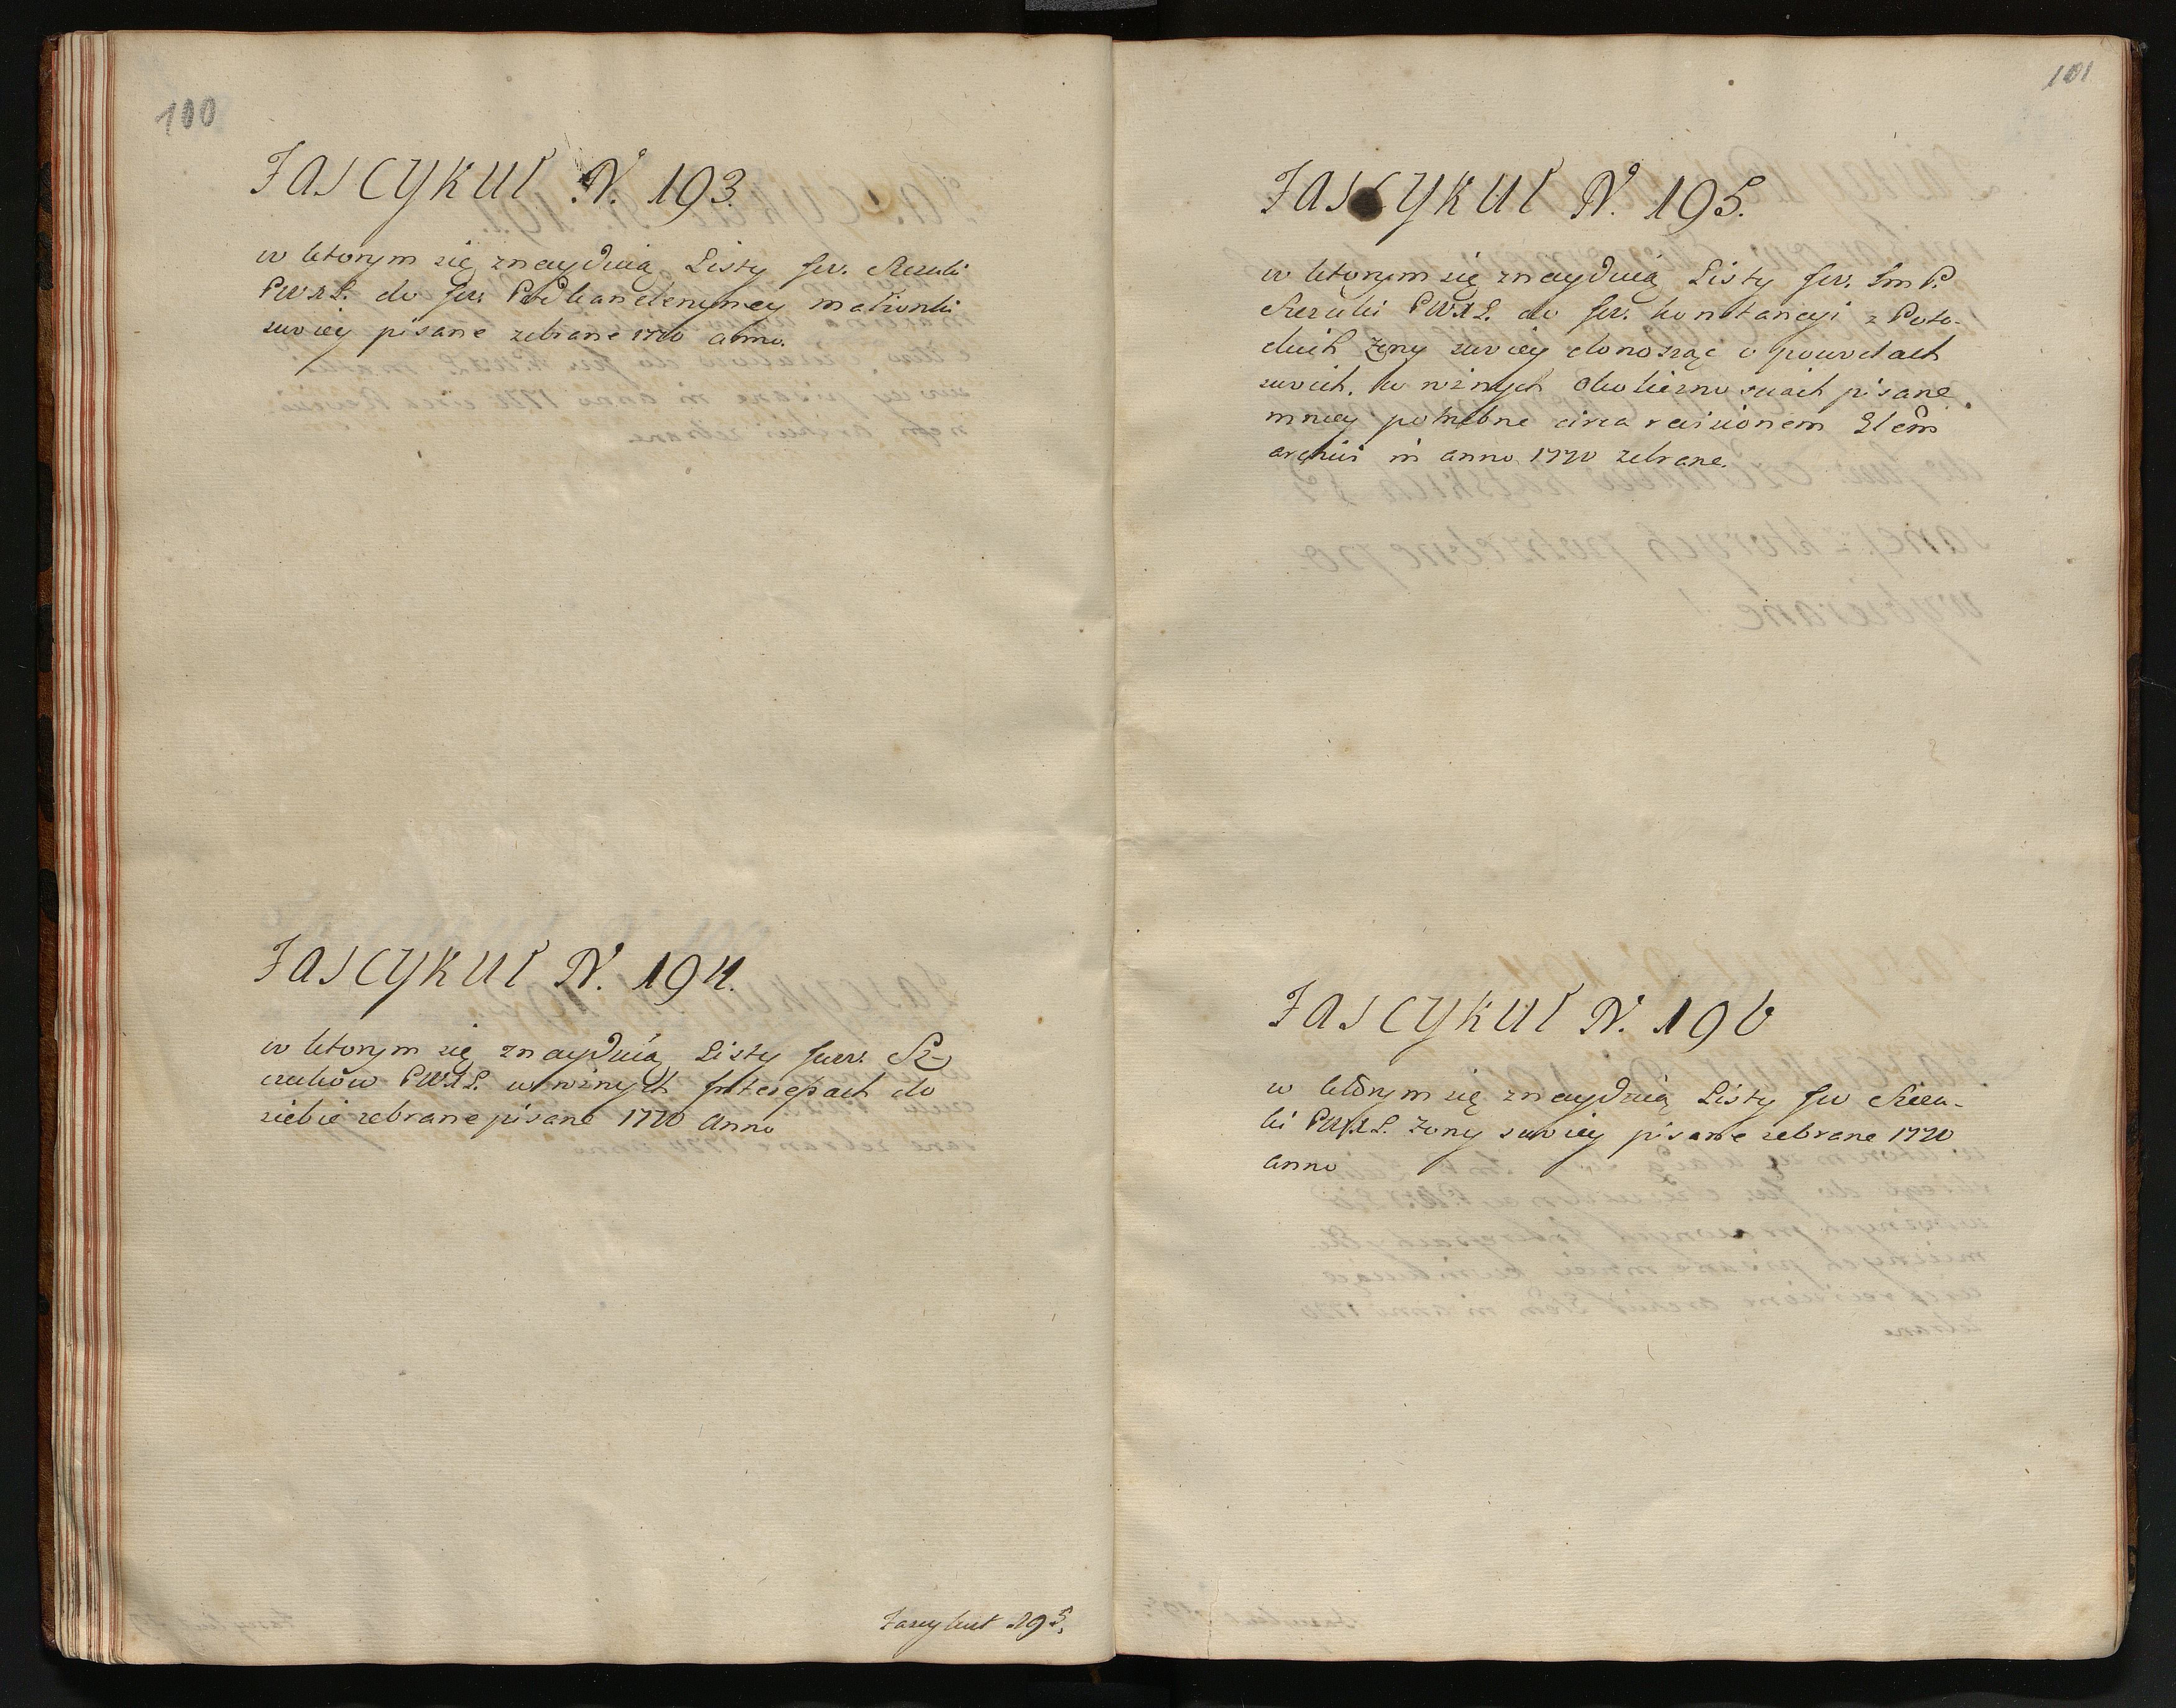 100
FASCYKUŁ N. 193.
w ktorym się znayduią Listy Jw. Szczuki
PWXL. do Jw. Podkanclerzyney małżonki
swoiey pisane zebrane 1770 anno.
FASCYKUŁ N. 194.
w ktorym się znayduią Listy Jww. Sz-
czuków PWXL. w rożnych Jnteressach do
siebie zebrane pisane 1770 Anno
Fascykuł 195.
101
FASCYKUŁ N. 195.
w ktorym się znayduią Listy Jw. Jm P.
Szczuki PWXL. do Jw. Konstancyi z Poto-
ckich żony swoiey donosząc o powodach
swoich. w rożnych okolicznosciach pisane
mniey potrzebne circa revisionem
archivi in anno 1770 zebrane.
FASCYKUŁ N. 196
w ktorym się znayduią Listy Jw Szczu-
ki PWXL. żony swoiey pisane zebrane 1770
anno